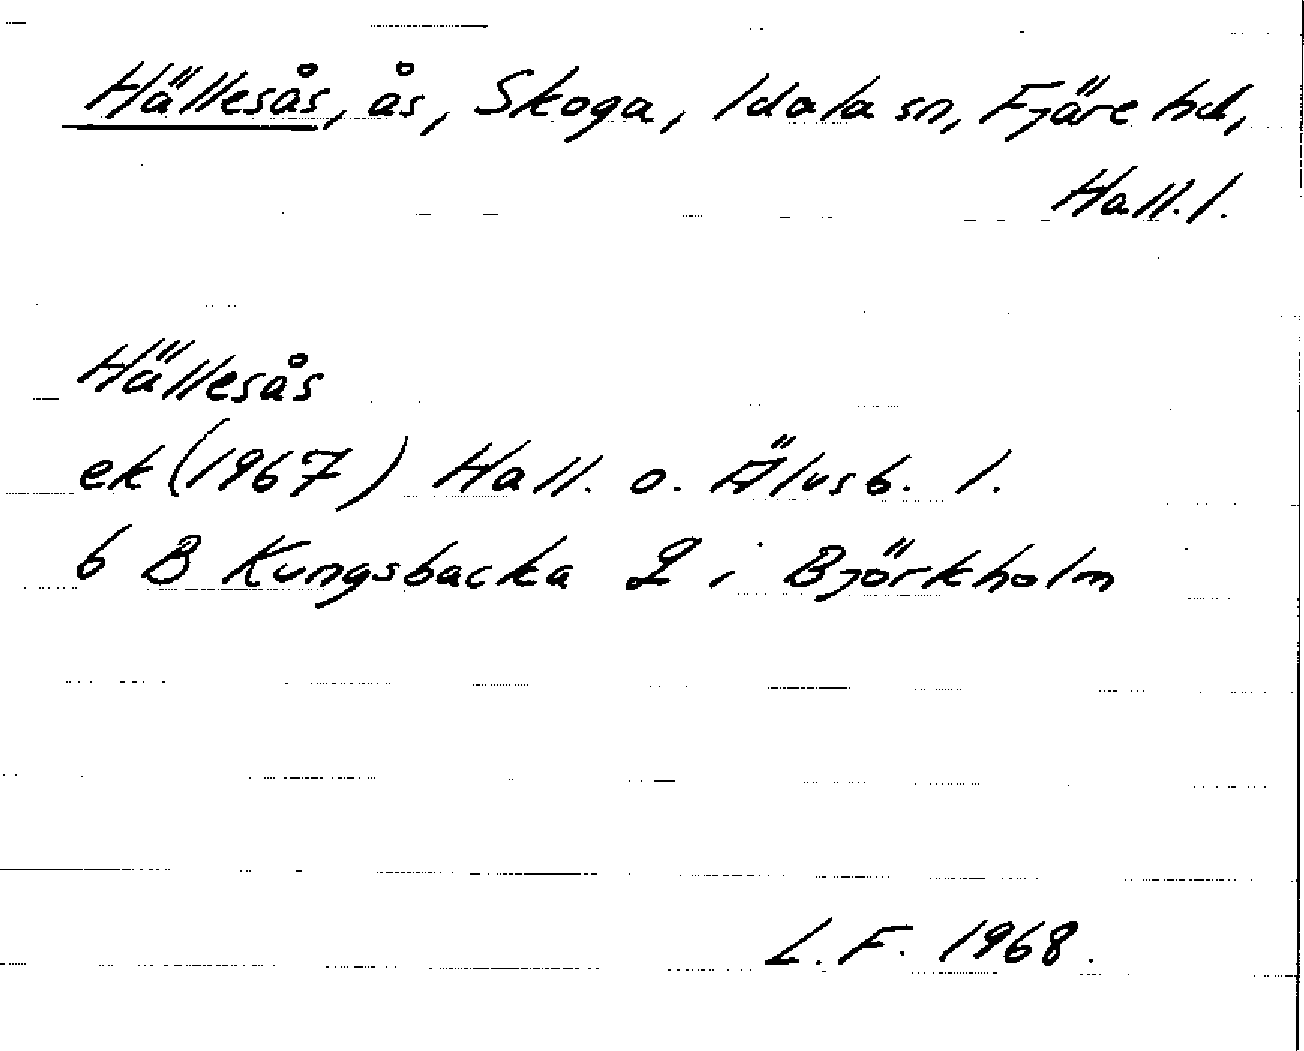 Hällesås, ås, Skoga, Idala sn, Fjäre hd,
Hall. l.
Hällesås
ek (1967) Hall. o. Älvsb. l.
6 B Kungsbacka 2 i Björkholm
L. F. 1968.